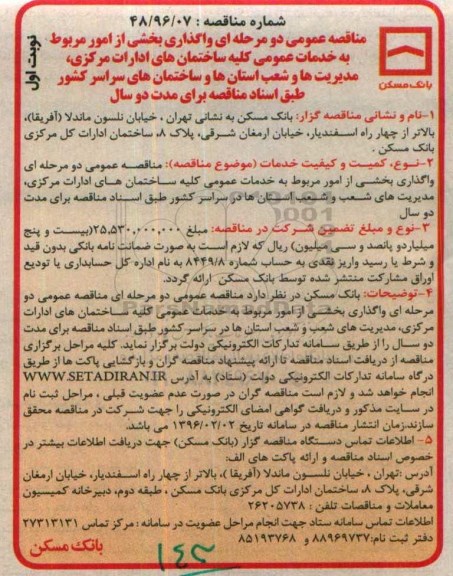 شماره مناقصه : ۴۸/۹۶/۰۷
نوبت اول
مناقصه عمومی دو مرحله ای واگذاری بخشی از امور مربوط
به خدمات عمومی کلیه ساختمان های ادارات مرکزی،
مدیریت ها و شعب استان ها و ساختمان های سراسر کشور
طبق اسناد مناقصه برای مدت دو سال
بانک مسکن
۱-نام و نشانی مناقصه گزار: بانک مسکن به نشانی تهران ، خیابان نلسون ماندلا (آفریقا)،
بالاتر از چهار راه اسفندیار، خیابان ارمغان شرقی، پلاک ۸، ساختمان ادارات کل مرکزی
بانک مسکن .
۲-نوع، کمیت و کیفیت خدمات (موضوع مناقصه): مناقصه عمومی دو مرحله ای
واگذاری بخشی از امور مربوط به خدمات عمومی کلیه ساختمان های ادارات مرکزی،
مدیریت های شعب و شعب استان ها در سراسر کشور طبق اسناد مناقصه برای مدت
دو سال
۳-نوع و مبلغ تضمین شرکت در مناقصه: مبلغ ۲۵,۵۳۰,۰۰۰,۰۰۰(بیست و پنج
میلیارد و پانصد و سی میلیون) ریال که لازم است به صورت ضمانت نامه بانکی بدون قید
و شرط یا رسید واریز نقدی به حساب شماره ۸۴۴۹/۸ به نام اداره کل حسابداری یا تودیع
اوراق مشارکت منتشر شده توسط بانک مسکن ارائه گردد.
۴-توضیحات: بانک مسکن در نظر دارد مناقصه عمومی دو مرحله ای مناقصه عمومی دو
مرحله ای واگذاری بخشی از امور مربوط به خدمات عمومی کلیه ساختمان های ادارات
مرکزی، مدیریت های شعب و شعب استان ها در سراسر کشور طبق اسناد مناقصه برای مدت
دو سال را از طریق سامانه تدارکات الکترونیکی دولت برگزار نماید. کلیه مراحل برگزاری
مناقصه از دریافت اسناد مناقصه تا ارائه پیشنهاد مناقصه گران و بازگشایی پاکت ها از طریق
درگاه سامانه تدارکات الکترونیکی دولت (ستاد) به آدرس WWW.SETADIRAN.IR
انجام خواهد شد و لازم است مناقصه گران در صورت عدم عضویت قبلی ، مراحل ثبت نام
در سایت مذکور و دریافت گواهی امضای الکترونیکی را جهت شرکت در مناقصه محقق
سازند.زمان انتشار مناقصه در سامانه تاریخ ۱۳۹۶/۰۲/۰۲ می باشد.
۵- اطلاعات تماس دستگاه مناقصه گزار (بانک مسکن) جهت دریافت اطلاعات بیشتر در
خصوص اسناد مناقصه و ارائه پاکت های الف:
آدرس :تهران ، خیابان نلسون ماندلا (آفریقا )، بالاتر از چهار راه اسفندیار، خیابان ارمغان
شرقی، پلاک ۸، ساختمان ادارات کل مرکزی بانک مسکن ، طبقه دوم، دبیرخانه کمیسیون
معاملات و مناقصات تلفن : ۲۶۲۰۵۷۳۸
اطلاعات تماس سامانه ستاد جهت انجام مراحل عضویت در سامانه : مرکز تماس ۲۷۳۱۳۱۳۱
دفتر ثبت نام:۸۸۹۶۹۷۳۷ و ۸۵۱۹۳۷۶۸
بانک مسکن